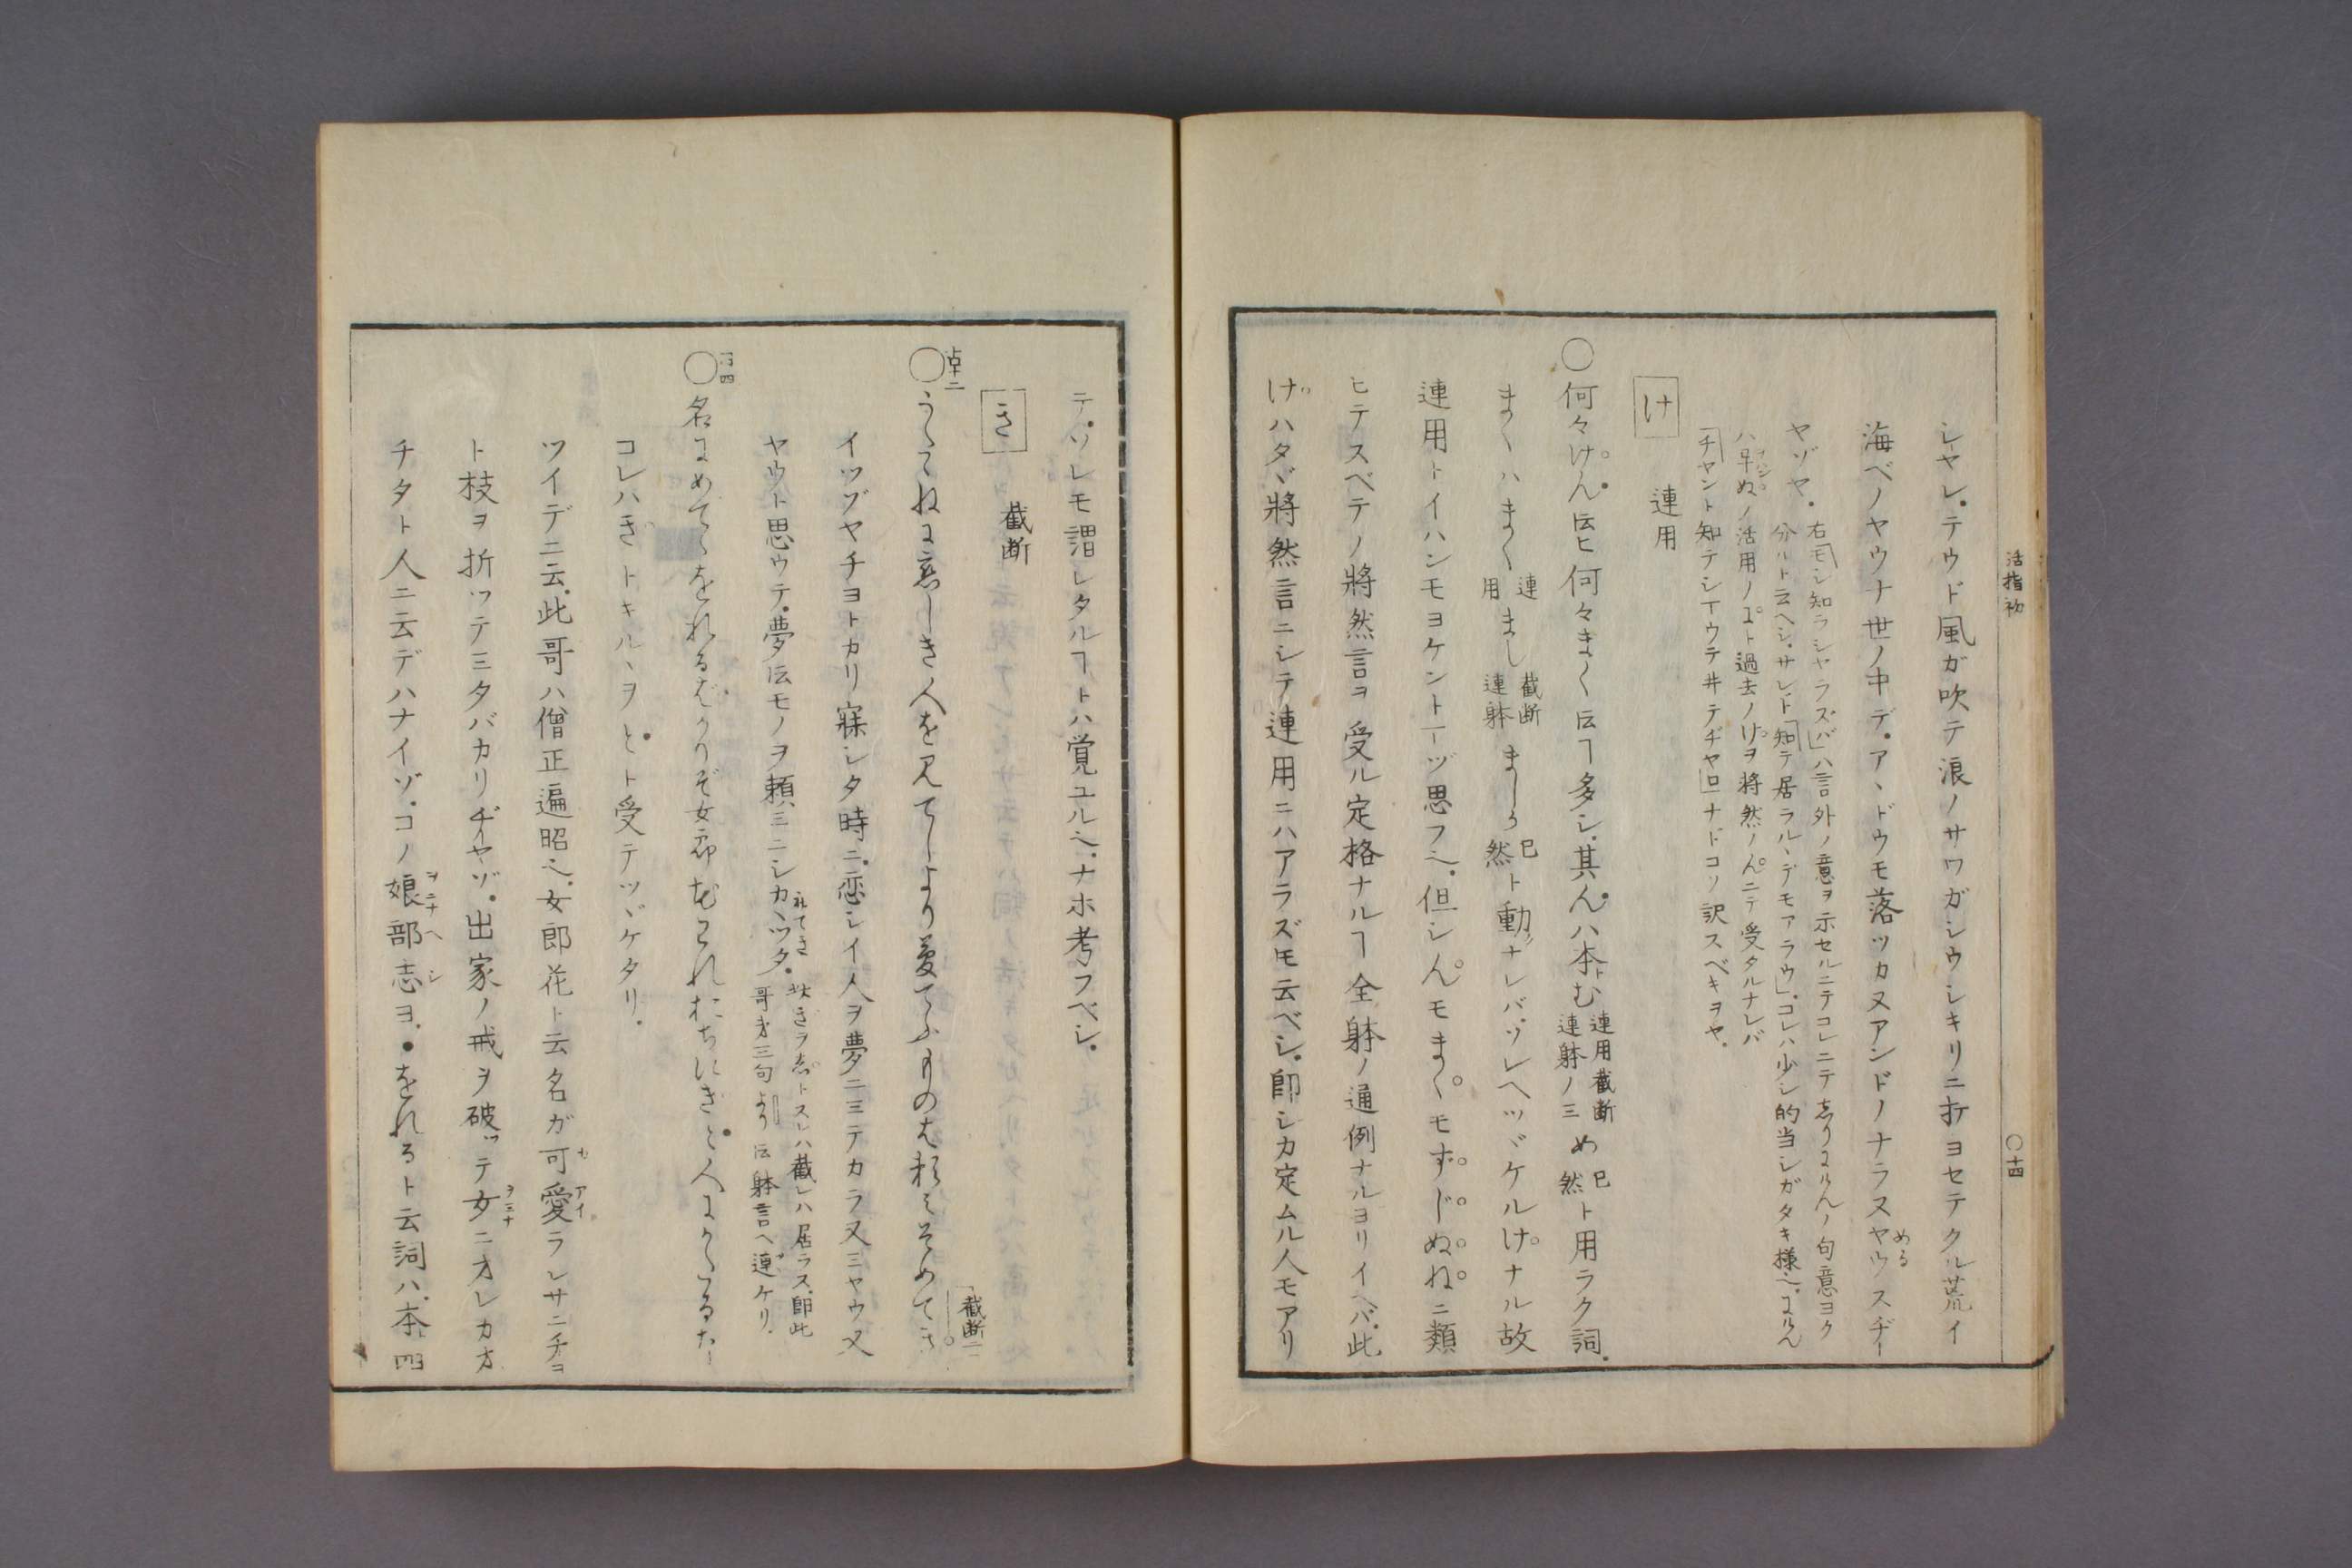 活指初
〇十四
シヤレ。テウド風ガ吹テ浪ノサワガシウシキリニ打ヨセテクル荒イ
海ベノヤウナ世ノ中デ。アヽドウモ落ツカヌアンドノナラヌヤウスヂー
める
ヤゾヤ。
右「モシ知ラシヤラズバ」ハ言外ノ意ヲ示セルニテコレニテ
分ルト云ヘシ。サレド「知テ居ラルヽデモアラウ」。コレハ少シ的当シガタキ様也。
ノ活用ノ
ト過去ノけヲ将然ノんニテ受タルナレバ
「チヤント知テシーウテ井テヂヤロ」ナドコソ訳スベキヲヤ。
け　連用
〇何々けん伝ヒ何々まく伝ヿ多シ。其んハ本トむ連用截断連躰ノ三め已然ト用ラク詞。
まくハまく連用まし截断連躰ましか已然ト動ナレバ。ソレヘツヾケルけナル故
連用トイハンモヨケントーヅ思フ也。但シんモまくモずじぬねニ類
ヒテスベテノ將然言ヲ受ル定格ナルヿ全躰ノ通例ナルヨリイヘバ。此
けハタヾ將然言ニシテ連用ニハアラズトモ云ベシ。即シカ定ムル人モアリ
テ。ソレモ謂レタルヿトハ覚ユル也。ナホ考フベシ。
き　截断
〇うたゝねに恋しき人を見てしより夢てふものは頼みそめてき
截断ニ
イツゾヤチヨトカリ寐シタ時ニ。恋シイ人ヲ夢ニミテカラ又ミヤウ又
ヤウト思ウテ。夢伝モノヲ頼ミニシカヽツタ。
れてき
きヲしトスレハ截レハ居ラス。即此
哥才三句より伝躰言ヘ連ケリ。
〇名にめでゝをれるばかりぞ女郎花われおちにきと人にかたるな
コレハきトキルヽヲとト受テツヾケタリ。
ツイデニ云。此哥ハ僧正遍昭也。女郎花ト云名ガ可愛ラシサニチヨ
カアイ
ト枝ヲ折ツテミタバカリヂヤゾ。出家ノ戒ヲ破ツテ女ニオレカオ
ヲミナ
チタト人ニ云デハナイゾ。コノ娘部志ヨ。・をれるト云詞ハ。本ト四
ヲミナヘシ